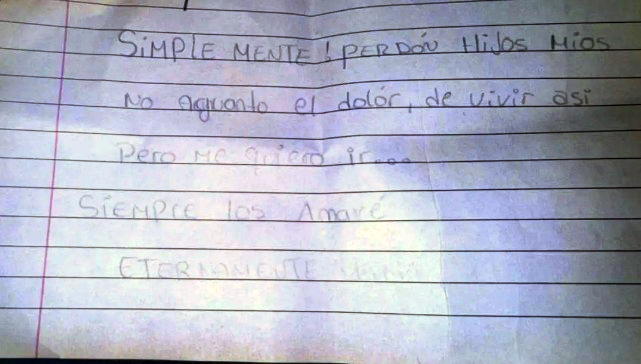 SiMPLE MENTE! PERDÓN HiJOS MIOS
No Aguanto el dolór, de vivir asi
Pero Me quiero ir....
SiEMPRE los Amaré
ETERNAMENTE MAMÁ